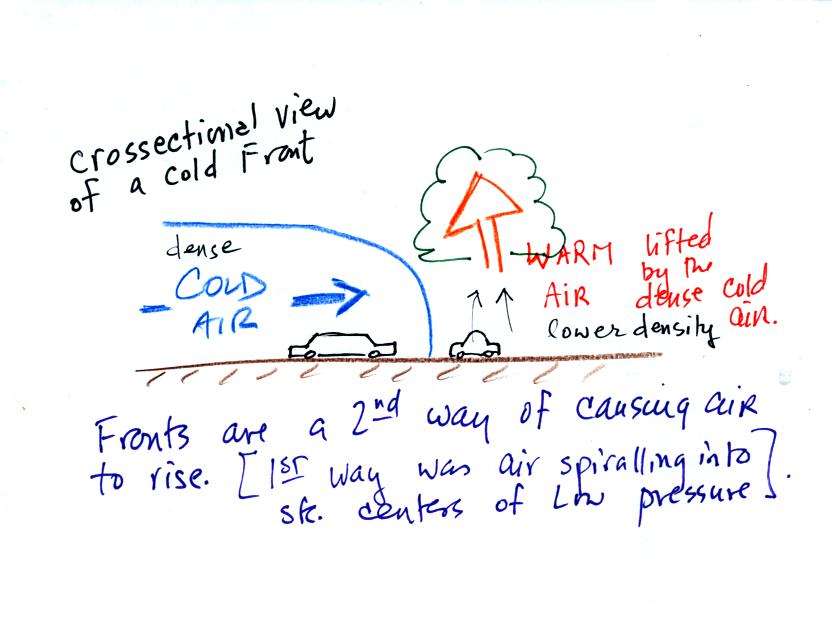 crossectional view
of a cold Front
dense
COLD
AIR
WARM
AIR
lower density
lifted
by the
dense cold
air.
Fronts are a 2nd way of causing air
to rise. [1st way was air spiralling into
sfc. centers of Low pressure].